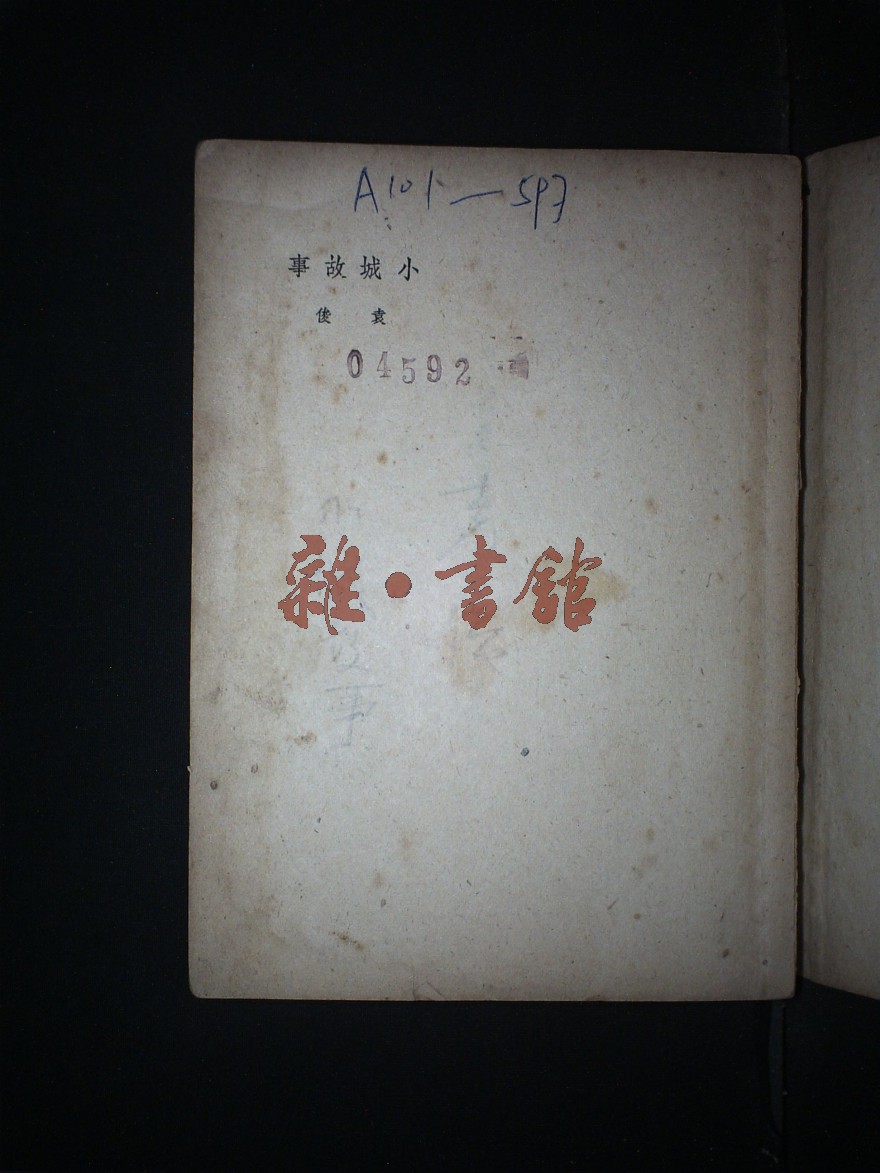 A101—597
小城故事
袁俊
04592
雜·書館
事